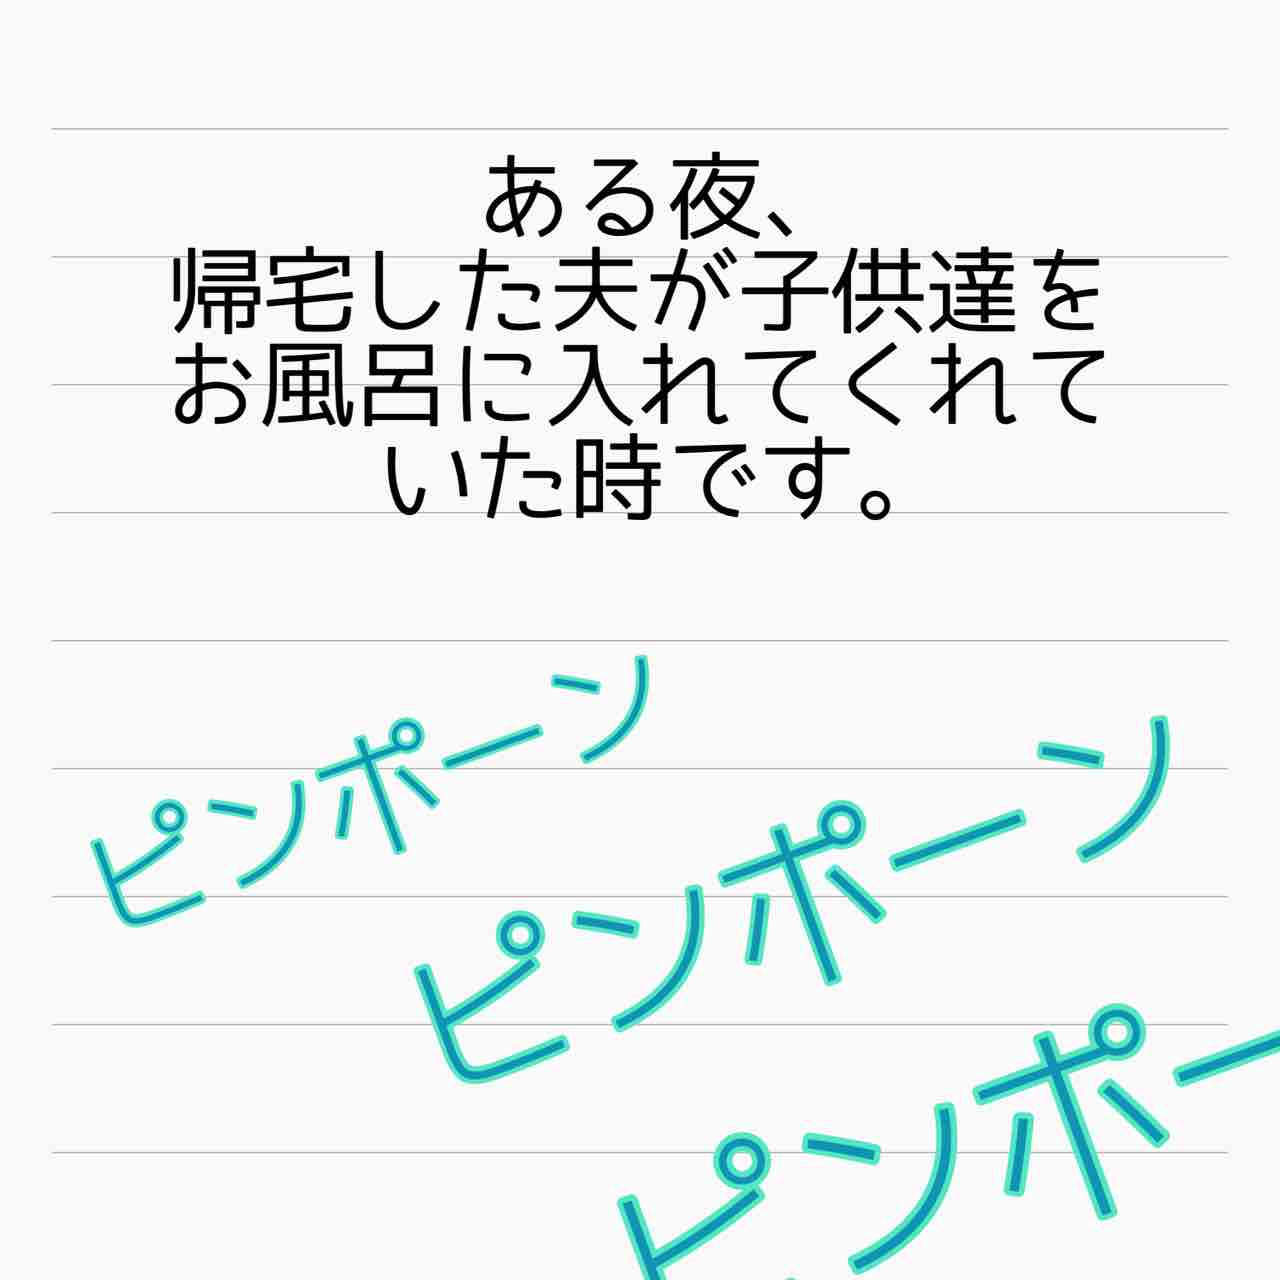 ある夜、
帰宅した夫が子供達を
お風呂に入れてくれて
いた時です。
ピンポーン
ピンポーン
ピンポー